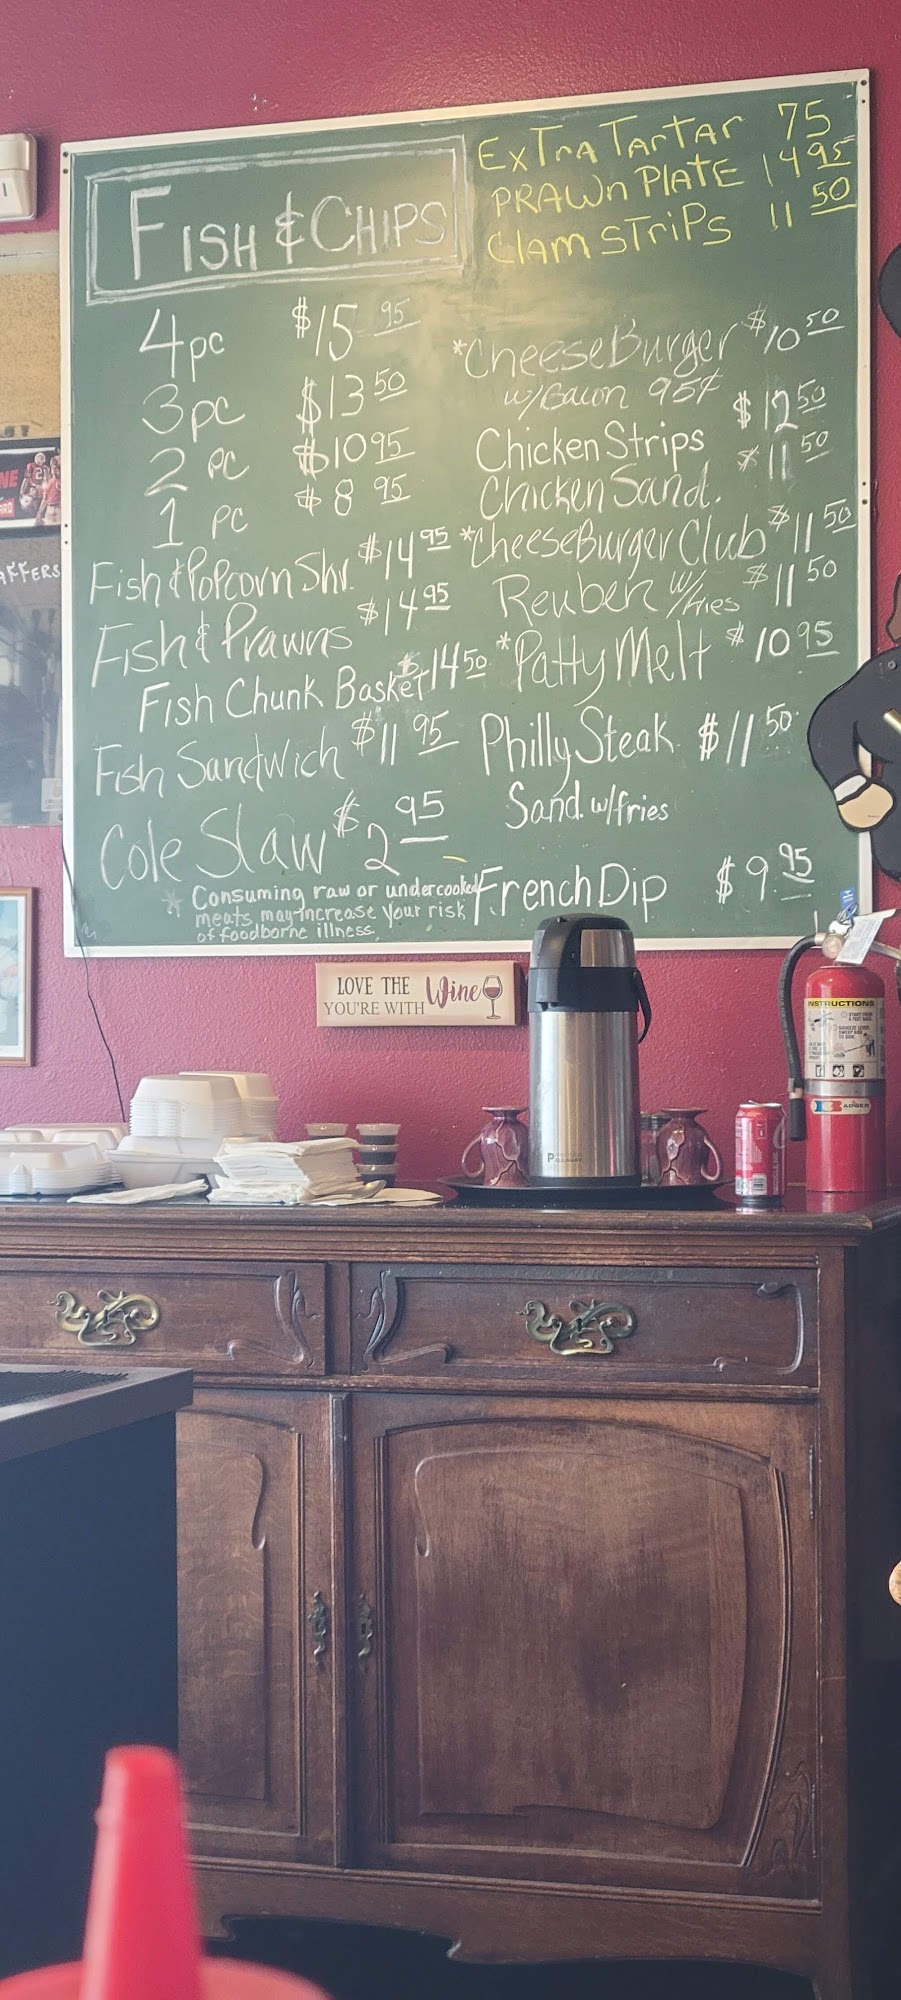 FISH & CHIPS
4 pc $15 95
3 pc $13 50
2 pc $10 95
1 pc $8 95
Fish & Popcorn Shr. $14 95
Fish & Prawns $14 95
Fish Chunk Basket $14 50
Fish Sandwich $11 95
Cole Slaw $2 95
* Consuming raw or undercooked
meats may increase your risk
of foodborne illness.
ExTra TarTar 75
PRAWn PLATE 14 95
Clam STriPs 11 50
*CheeseBurger $10 50
w/Bacon 95¢
Chicken Strips $12 50
Chicken Sand. $11 50
*CheeseBurger Club $11 50
Reuben w/fries $11 50
*Patty Melt $10 95
Philly Steak $11 50
Sand. w/fries
French Dip $9 95
AFFERS
LOVE THE Wine
YOU'RE WITH
INSTRUCTIONS
BADGER